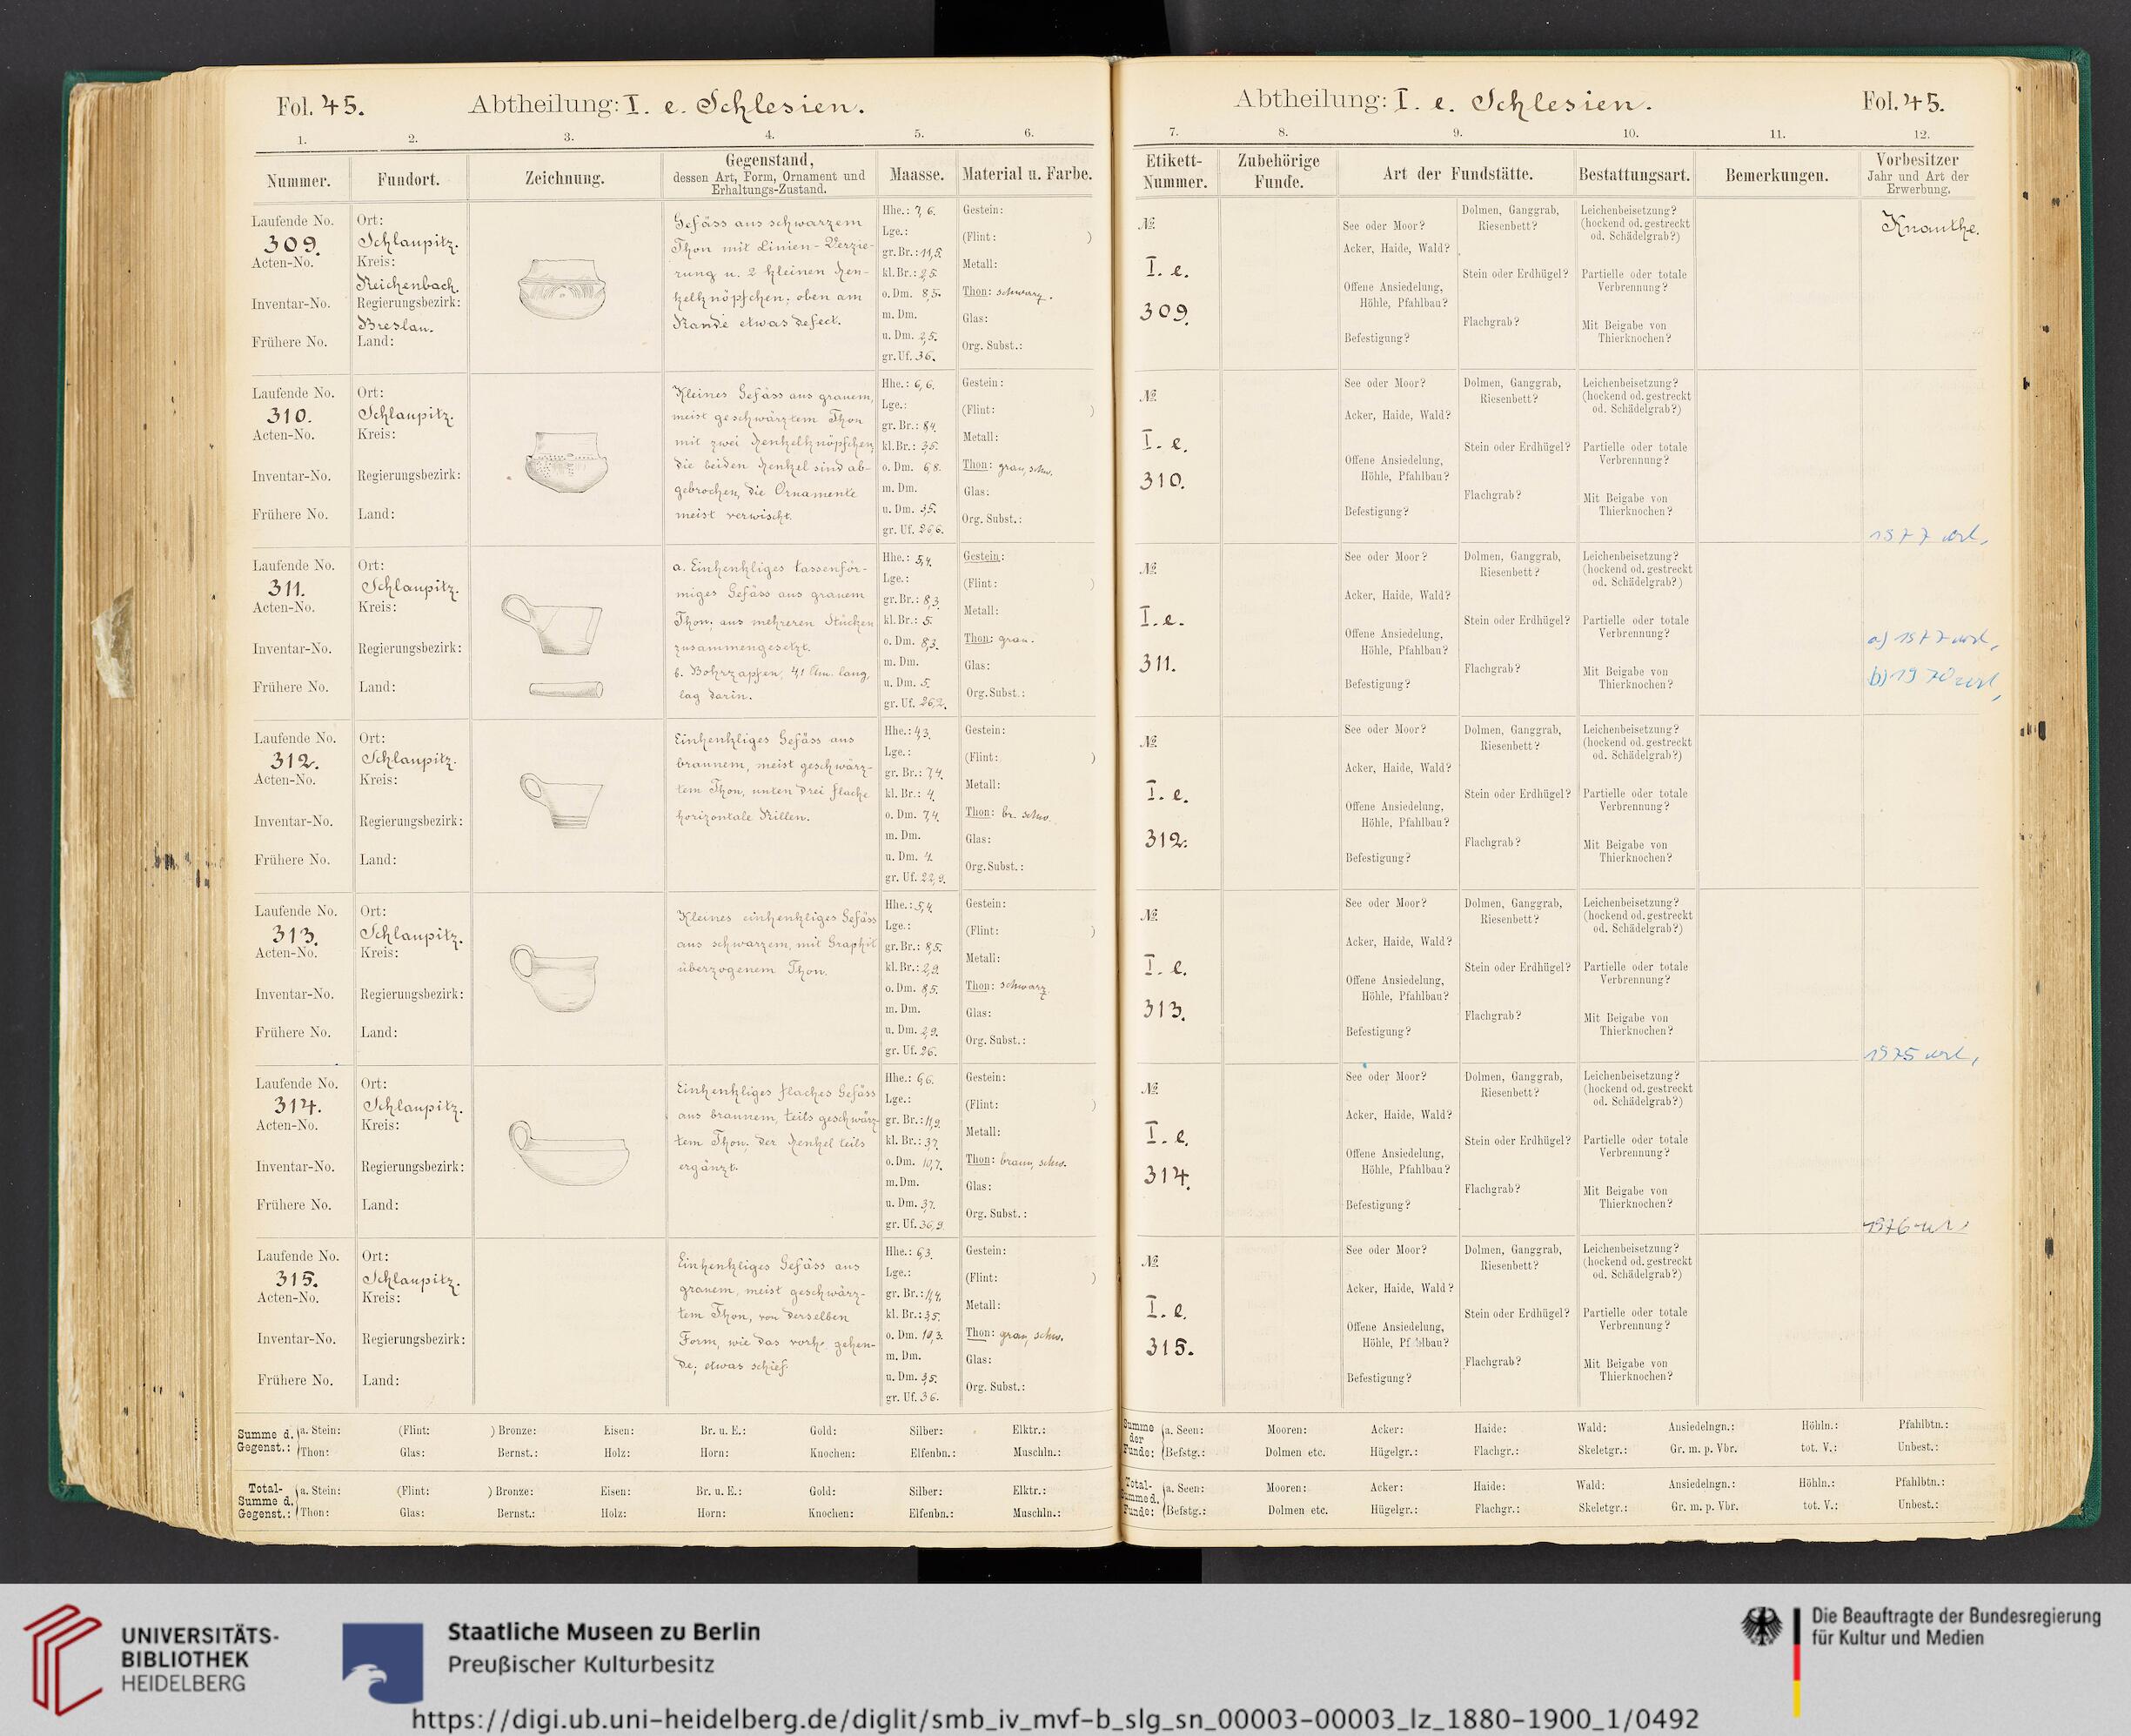 Fol. 45. Abtheilung: I. e. Schlesien.
1. 2. 3. 4. 5. 6.
Nummer. Fundort. Zeichnung. Gegenstand, dessen Art, Form, Ornament und Erhaltungs-Zustand. Maasse. Material u. Farbe.
Laufende No. 309.
Acten-No.
Inventar-No.
Frühere No.
Ort: Schlaupitz.
Kreis: Reichenbach.
Regierungsbezirk: Breslau.
Land:
Gefäss aus schwarzem
Thon mit Linien-Verzie-
rung u. 2 kleinen Hen-
kelknöpfchen; oben am
Rande etwas defect.
Hhe.: 7,6.
Lge.:
gr. Br.: 11,5.
kl. Br.: 2,5.
o. Dm. 8,5.
m. Dm.
u. Dm. 2,5.
gr. Uf. 36.
Gestein:
(Flint: )
Metall:
Thon: schwarz.
Glas:
Org. Subst.:
Laufende No. 310.
Acten-No.
Inventar-No.
Frühere No.
Ort: Schlaupitz.
Kreis:
Regierungsbezirk:
Land:
Kleines Gefäss aus grauem,
meist geschwärztem Thon
mit zwei Henkelknöpfchen,
die beiden Henkel sind ab-
gebrochen, die Ornamente
meist verwischt.
Hhe.: 6,6.
Lge.:
gr. Br.: 8,4.
kl. Br.: 3,5.
o. Dm. 6,8.
m. Dm.
u. Dm. 3,5.
gr. Uf. 26,6.
Gestein:
(Flint: )
Metall:
Thon: grau, schw.
Glas:
Org. Subst.:
Laufende No. 311.
Acten-No.
Inventar-No.
Frühere No.
Ort: Schlaupitz.
Kreis:
Regierungsbezirk:
Land:
a. Einhenkliges tassenför-
miges Gefäss aus grauem
Thon; aus mehreren Stücken
zusammengesetzt.
b. Bohrzapfen, 4,1 Ctm. lang,
lag darin.
Hhe.: 5,4.
Lge.:
gr. Br.: 8,3.
kl. Br.: 5.
o. Dm. 8,3.
m. Dm.
u. Dm. 5.
gr. Uf. 26,2.
Gestein:
(Flint: )
Metall:
Thon: grau.
Glas:
Org. Subst.:
Laufende No. 312.
Acten-No.
Inventar-No.
Frühere No.
Ort: Schlaupitz.
Kreis:
Regierungsbezirk:
Land:
Einhenkliges Gefäss aus
braunem, meist geschwärz-
tem Thon, unten drei flache
horizontale Rillen.
Hhe.: 4,3.
Lge.:
gr. Br.: 7,4.
kl. Br.: 4.
o. Dm. 7,4.
m. Dm.
u. Dm. 4.
gr. Uf. 22,9.
Gestein:
(Flint: )
Metall:
Thon: br. schw.
Glas:
Org. Subst.:
Laufende No. 313.
Acten-No.
Inventar-No.
Frühere No.
Ort: Schlaupitz.
Kreis:
Regierungsbezirk:
Land:
Kleines einhenkliges Gefäss
aus schwarzem, mit Graphit
überzogenem Thon.
Hhe.: 5,4.
Lge.:
gr. Br.: 8,5.
kl. Br.: 2,9.
o. Dm. 8,5.
m. Dm.
u. Dm. 2,9.
gr. Uf. 26.
Gestein:
(Flint: )
Metall:
Thon: schwarz.
Glas:
Org. Subst.:
Laufende No. 314.
Acten-No.
Inventar-No.
Frühere No.
Ort: Schlaupitz.
Kreis:
Regierungsbezirk:
Land:
Einhenkliges flaches Gefäss
aus braunem, teils geschwärz-
tem Thon; der Henkel teils
ergänzt.
Hhe.: 6,6.
Lge.:
gr. Br.: 11,9.
kl. Br.: 3,7.
o. Dm. 10,7.
m. Dm.
u. Dm. 3,7.
gr. Uf. 36,9.
Gestein:
(Flint: )
Metall:
Thon: braun, schw.
Glas:
Org. Subst.:
Laufende No. 315.
Acten-No.
Inventar-No.
Frühere No.
Ort: Schlaupitz.
Kreis:
Regierungsbezirk:
Land:
Einhenkliges Gefäss aus
grauem, meist geschwärz-
tem Thon, von derselben
Form, wie das vorh. gehen-
de; etwas schief.
Hhe.: 6,3.
Lge.:
gr. Br.: 11,4.
kl. Br.: 3,5.
o. Dm. 10,3.
m. Dm.
u. Dm. 3,5.
gr. Uf. 36.
Gestein:
(Flint: )
Metall:
Thon: grau, schw.
Glas:
Org. Subst.:
Summe d. Gegenst.: a. Stein: (Flint: ) Bronze: Eisen: Br. u. E.: Gold: Silber: Elktr.:
Thon: Glas: Bernst.: Holz: Horn: Knochen: Elfenbn.: Muschln.:
Total-Summe d. Gegenst.: a. Stein: (Flint: ) Bronze: Eisen: Br. u. E.: Gold: Silber: Elktr.:
Thon: Glas: Bernst.: Holz: Horn: Knochen: Elfenbn.: Muschln.:
Abtheilung: I. e. Schlesien. Fol. 45.
7. 8. 9. 10. 11. 12.
Etikett-Nummer. Zubehörige Funde. Art der Fundstätte. Bestattungsart. Bemerkungen. Vorbesitzer Jahr und Art der Erwerbung.
№ I. e. 309.
See oder Moor?
Acker, Haide, Wald?
Offene Ansiedelung, Höhle, Pfahlbau?
Befestigung?
Dolmen, Ganggrab, Riesenbett?
Stein oder Erdhügel?
Flachgrab?
Leichenbeisetzung? (hockend od. gestreckt od. Schädelgrab?)
Partielle oder totale Verbrennung?
Mit Beigabe von Thierknochen?
Knauthe.
№ I. e. 310.
See oder Moor?
Acker, Haide, Wald?
Offene Ansiedelung, Höhle, Pfahlbau?
Befestigung?
Dolmen, Ganggrab, Riesenbett?
Stein oder Erdhügel?
Flachgrab?
Leichenbeisetzung? (hockend od. gestreckt od. Schädelgrab?)
Partielle oder totale Verbrennung?
Mit Beigabe von Thierknochen?
1977
№ I. e. 311.
See oder Moor?
Acker, Haide, Wald?
Offene Ansiedelung, Höhle, Pfahlbau?
Befestigung?
Dolmen, Ganggrab, Riesenbett?
Stein oder Erdhügel?
Flachgrab?
Leichenbeisetzung? (hockend od. gestreckt od. Schädelgrab?)
Partielle oder totale Verbrennung?
Mit Beigabe von Thierknochen?
a) 1977
b) 1970
№ I. e. 312.
See oder Moor?
Acker, Haide, Wald?
Offene Ansiedelung, Höhle, Pfahlbau?
Befestigung?
Dolmen, Ganggrab, Riesenbett?
Stein oder Erdhügel?
Flachgrab?
Leichenbeisetzung? (hockend od. gestreckt od. Schädelgrab?)
Partielle oder totale Verbrennung?
Mit Beigabe von Thierknochen?
№ I. e. 313.
See oder Moor?
Acker, Haide, Wald?
Offene Ansiedelung, Höhle, Pfahlbau?
Befestigung?
Dolmen, Ganggrab, Riesenbett?
Stein oder Erdhügel?
Flachgrab?
Leichenbeisetzung? (hockend od. gestreckt od. Schädelgrab?)
Partielle oder totale Verbrennung?
Mit Beigabe von Thierknochen?
1975
№ I. e. 314.
See oder Moor?
Acker, Haide, Wald?
Offene Ansiedelung, Höhle, Pfahlbau?
Befestigung?
Dolmen, Ganggrab, Riesenbett?
Stein oder Erdhügel?
Flachgrab?
Leichenbeisetzung? (hockend od. gestreckt od. Schädelgrab?)
Partielle oder totale Verbrennung?
Mit Beigabe von Thierknochen?
1976
№ I. e. 315.
See oder Moor?
Acker, Haide, Wald?
Offene Ansiedelung, Höhle, Pfahlbau?
Befestigung?
Dolmen, Ganggrab, Riesenbett?
Stein oder Erdhügel?
Flachgrab?
Leichenbeisetzung? (hockend od. gestreckt od. Schädelgrab?)
Partielle oder totale Verbrennung?
Mit Beigabe von Thierknochen?
Summe der Funde: a. Seen: Mooren: Acker: Haide: Wald: Ansiedelngn.: Höhln.: Pfahlbtn.:
Befstg.: Dolmen etc. Hügelgr.: Flachgr.: Skeletgr.: Gr. m. p. Vbr. tot. V.: Unbest.:
Total-Summe d. Funde: a. Seen: Mooren: Acker: Haide: Wald: Ansiedelngn.: Höhln.: Pfahlbtn.:
Befstg.: Dolmen etc. Hügelgr.: Flachgr.: Skeletgr.: Gr. m. p. Vbr. tot. V.: Unbest.:
UNIVERSITÄTS-
BIBLIOTHEK
HEIDELBERG
Staatliche Museen zu Berlin
Preußischer Kulturbesitz
Die Beauftragte der Bundesregierung
für Kultur und Medien
https://digi.ub.uni-heidelberg.de/diglit/smb_iv_mvf-b_slg_sn_00003-00003_lz_1880-1900_1/0492